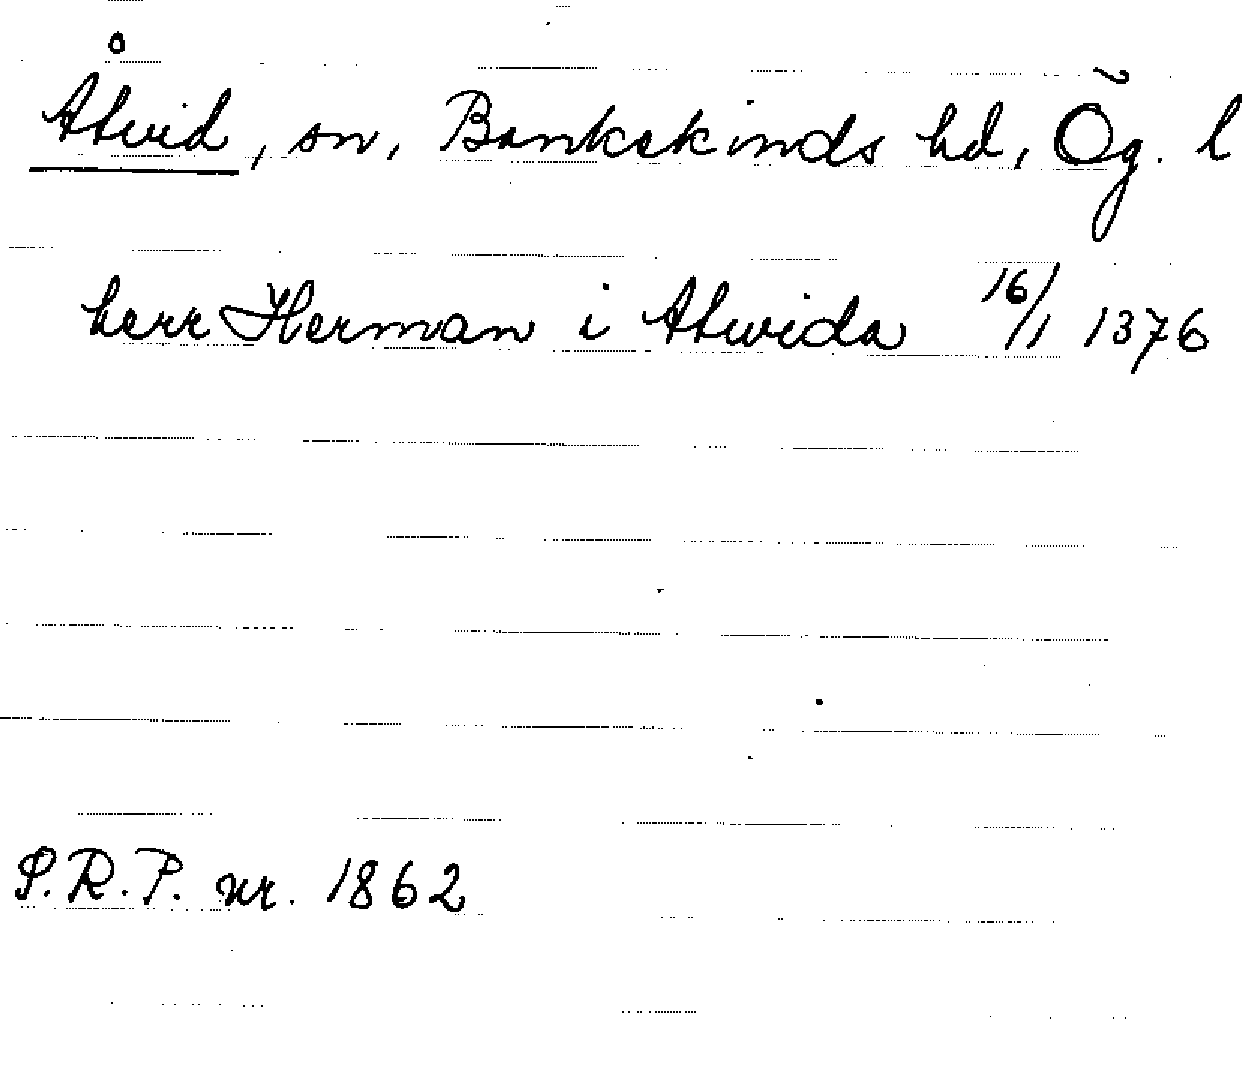 Åtvid, sn, Bankekinds hd, Ög. l
herr Herman i Atwida 16/1 1376
S.R.P. nr. 1862